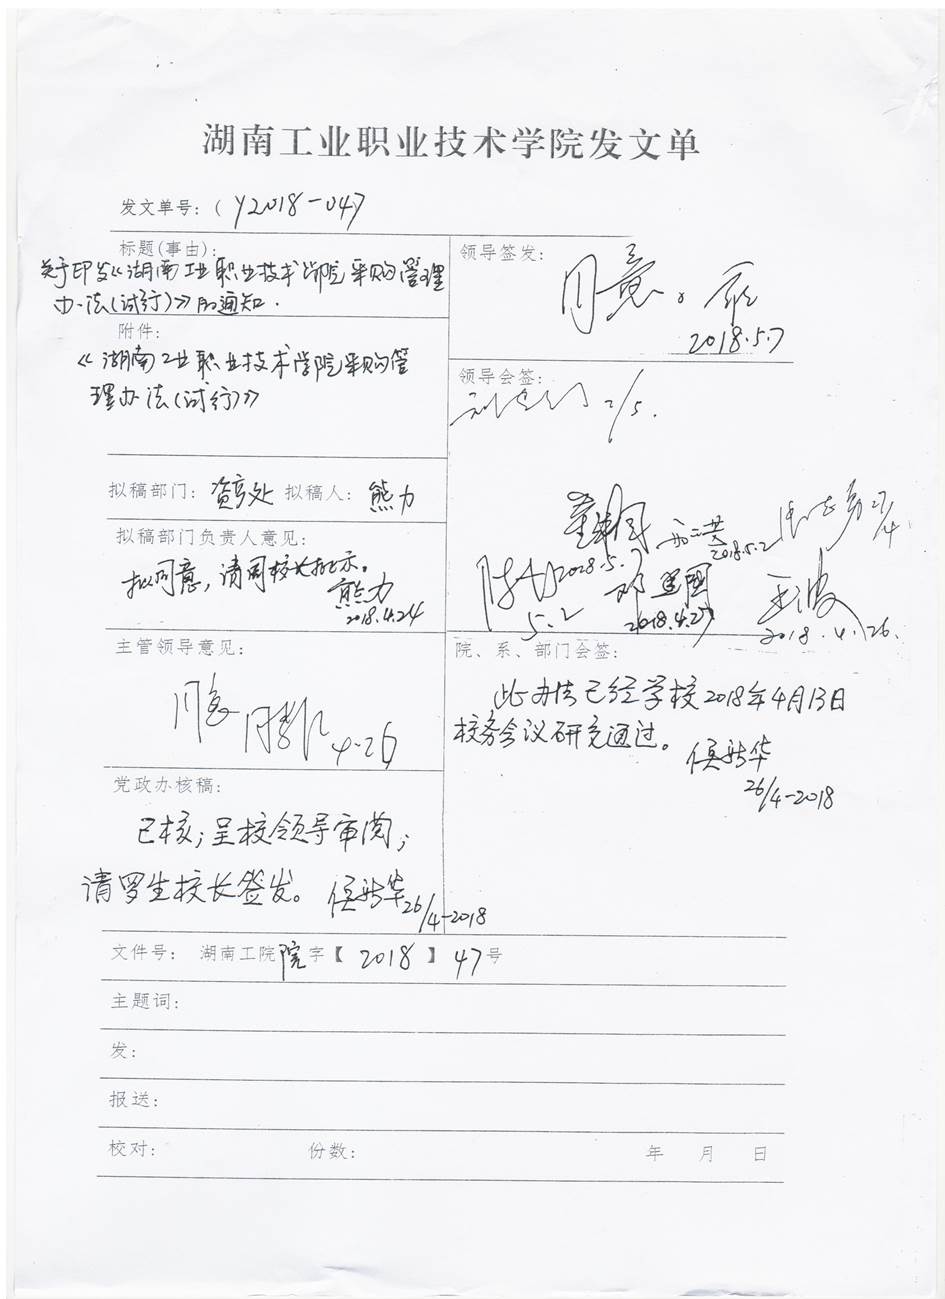 湖南工业职业技术学院发文单
发文单号：（ Y2018-047
标题(事由)：
关于印发《湖南工业职业技术学院采购管理
办法(试行)》的通知.
附件：
《湖南工业职业技术学院采购管
理办法(试行)》
拟稿部门： 资产处 拟稿人： 熊力
拟稿部门负责人意见：
拟同意，请周校长批示。
熊力
2018.4.24
主管领导意见：
同意
4-26
党政办核稿：
已核；呈校领导审阅；
请罗生校长签发。 侯新华
26/4-2018
领导签发：
同意。
2018.5.7
领导会签：
2/5.
27/4
2018.5.2
2018.5.7
5.2
2018.4.27
王波
2018.4.26.
院、系、部门会签：
此办法已经学校2018年4月13日
校务会议研究通过。
侯新华
26/4-2018
文件号： 湖南工院院字【 2018 】 47号
主题词：
发：
报送：
校对： 份数： 年 月 日